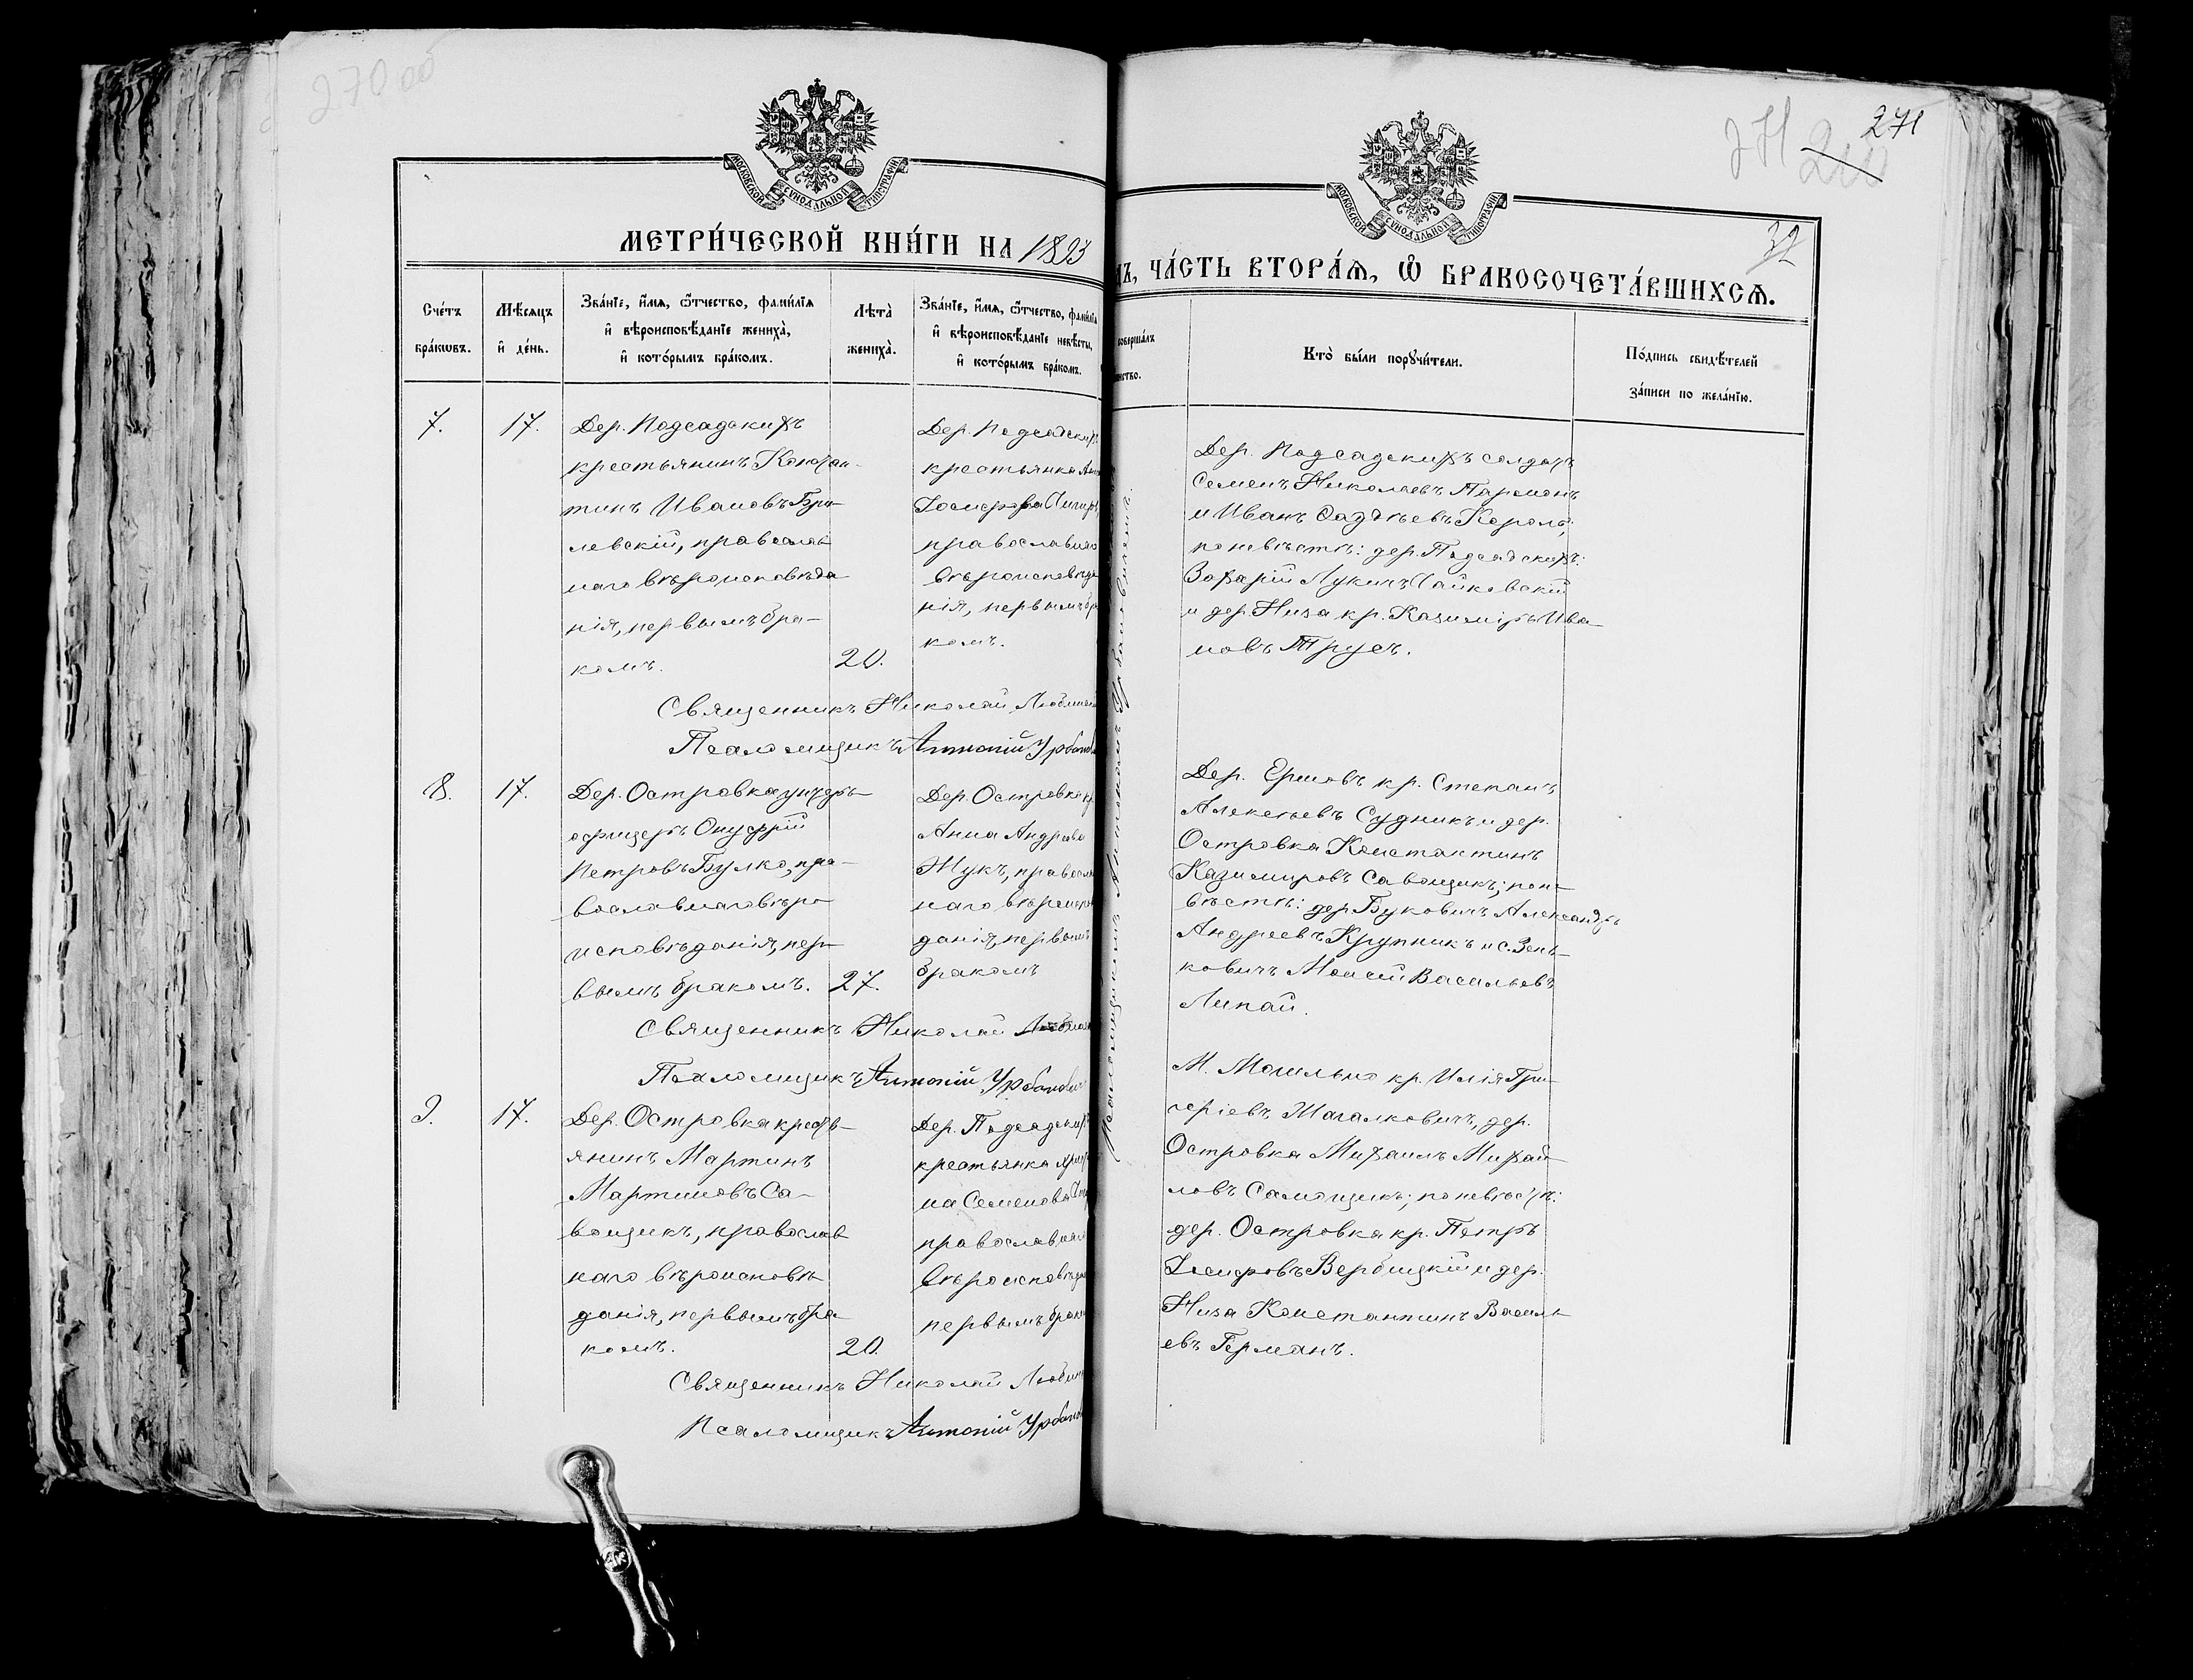 270 об
271
271
32
МОСКОВСКОЙ СѴНОДАЛЬНОЙ ТИПОГРАФІИ
МОСКОВСКОЙ СѴНОДАЛЬНОЙ ТИПОГРАФІИ
МЕТРИ́ЧЕСКОЙ КНИ́ГИ НА 1893
ЧА́СТЬ ВТОРА́Ѧ, Ѽ БРАКОСОЧЕТА́ВШИХСѦ.
Сче́тъ
бра́кѡвъ.
Мѣ́сяцъ
и҆ де́нь.
Зва́нїе, и҆́мѧ, ѻ҆́тчество, фами́лїѧ
и҆ вѣроисповѣ́данїе жениха̀,
и҆ кото́рымъ бра́комъ.
Лѣта̀
жениха̀.
Зва́нїе, и҆́мѧ, ѻ҆́тчество, фами́лїѧ
и҆ вѣроисповѣ́данїе невѣ́сты,
и҆ кото́рымъ бра́комъ.
соверша́лъ
Кто̀ бы́ли порꙋчи́тели.
По́дпись свидѣ́телей
за́писи по жела́нїю.
7.
17.
Дер. Подсадскихъ
крестьянинъ Констан-
тинъ Ивановъ
левскій, православ
наго вѣроисповѣда
нія, первымъ бра-
комъ.
20.
Дер. Подсадскихъ
крестьянка
Іосифова
православнаго
вѣроисповѣда
нія, первымъ бра
комъ.
Дер. Подсадскихъ солдатъ
Семенъ Николаевъ Пармонъ
и Иванъ Король,
по невѣстѣ: дер. Подсадскихъ:
Захарій Лукинъ Чайковскій
и дер. Низа кр. Казиміръ Ива-
новъ Трусъ.
Священникъ Николай
Псаломщикъ Антоній Урбанов
8.
17.
Дер. Островка унтеръ-
офицеръ Онуфрій
Петровъ Булко, пра-
вославнаго вѣро-
исповѣданія, пер-
вымъ бракомъ.
27.
Дер. Островка кр.
Анна Андреева
Жукъ, православ
наго вѣроиспов
данія, первымъ
бракомъ
Дер. Ершовъ кр. Степанъ
Алексѣевъ Судникъ и дер.
Островка Константинъ
Казимировъ Савощикъ; по не-
вѣстѣ: дер. Буковичъ Александръ
Андреевъ Крупникъ и с. Зень-
ковичъ Моисей Васильевъ
Липай.
Священникъ Николай
Псаломщикъ Антоній Урбанович
9.
17.
Дер. Островка кресть-
янинъ Мартинъ
Мартиновъ Са-
вощикъ, православ
наго вѣроисповѣ-
данія, первымъ бра-
комъ.
20.
Дер. Подсадских
крестьянка
на Семенова
православнаго
вѣроисповѣда
первымъ брако
М. Могильно кр. Илія Гри-
горіевъ Жагалковичъ, дер.
Островка Михаилъ Михай-
ловъ Савощикъ; по невѣстѣ:
дер. Островка кр. Петръ
Іосифовъ Вербицкій и дер.
Низа Константинъ Василь-
евъ Германъ.
Священникъ Николай
Псаломщикъ Антоній Урбанов